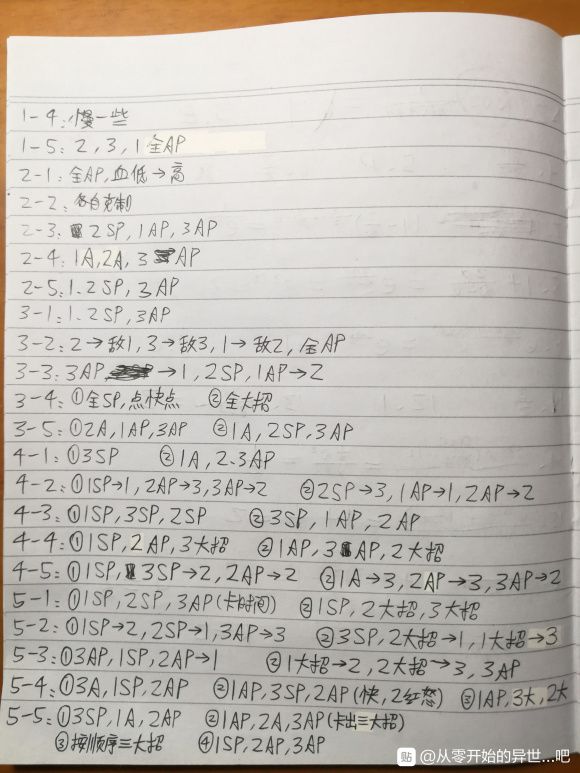 1-4:慢一些
1-5:2,3,1全AP
2-1:全AP,血低→高
2-2:各自克制
2-3:2SP,1AP,3AP
2-4:1A,2A,3AP
2-5:1.2SP,3AP
3-1:1.2SP,3AP
3-2:2→敌1,3→敌3,1→敌2,全AP
3-3:3AP→1,2SP,1AP→2
3-4:①全SP,点快点 ②全大招
3-5:①2A,1AP,3AP ②1A,2SP,3AP
4-1:①3SP ②1A,2.3AP
4-2:①1SP→1,2AP→3,3AP→2 ②2SP→3,1AP→1,2AP→2
4-3:①1SP,3SP,2SP ②3SP,1AP,2AP
4-4:①1SP,2AP,3大招 ②1AP,3AP,2大招
4-5:①1SP,3SP→2,2AP→2 ②1A→3,2AP→3,3AP→2
5-1:①1SP,2SP,3AP(卡时间) ②1SP,2大招,3大招
5-2:①1SP→2,2SP→1,3AP→3 ②3SP,2大招→1,1大招→3
5-3:①3AP,1SP,2AP→1 ②1大招→2,2大招→3,3AP
5-4:①3A,1SP,2AP ②1AP,3SP,2AP(快,2红怒) ③1AP,3大,2大
5-5:①3SP,1A,2AP ②1AP,2A,3AP(卡出三大招)
③按顺序三大招 ④1SP,2AP,3AP
贴 @从零开始的异世...吧